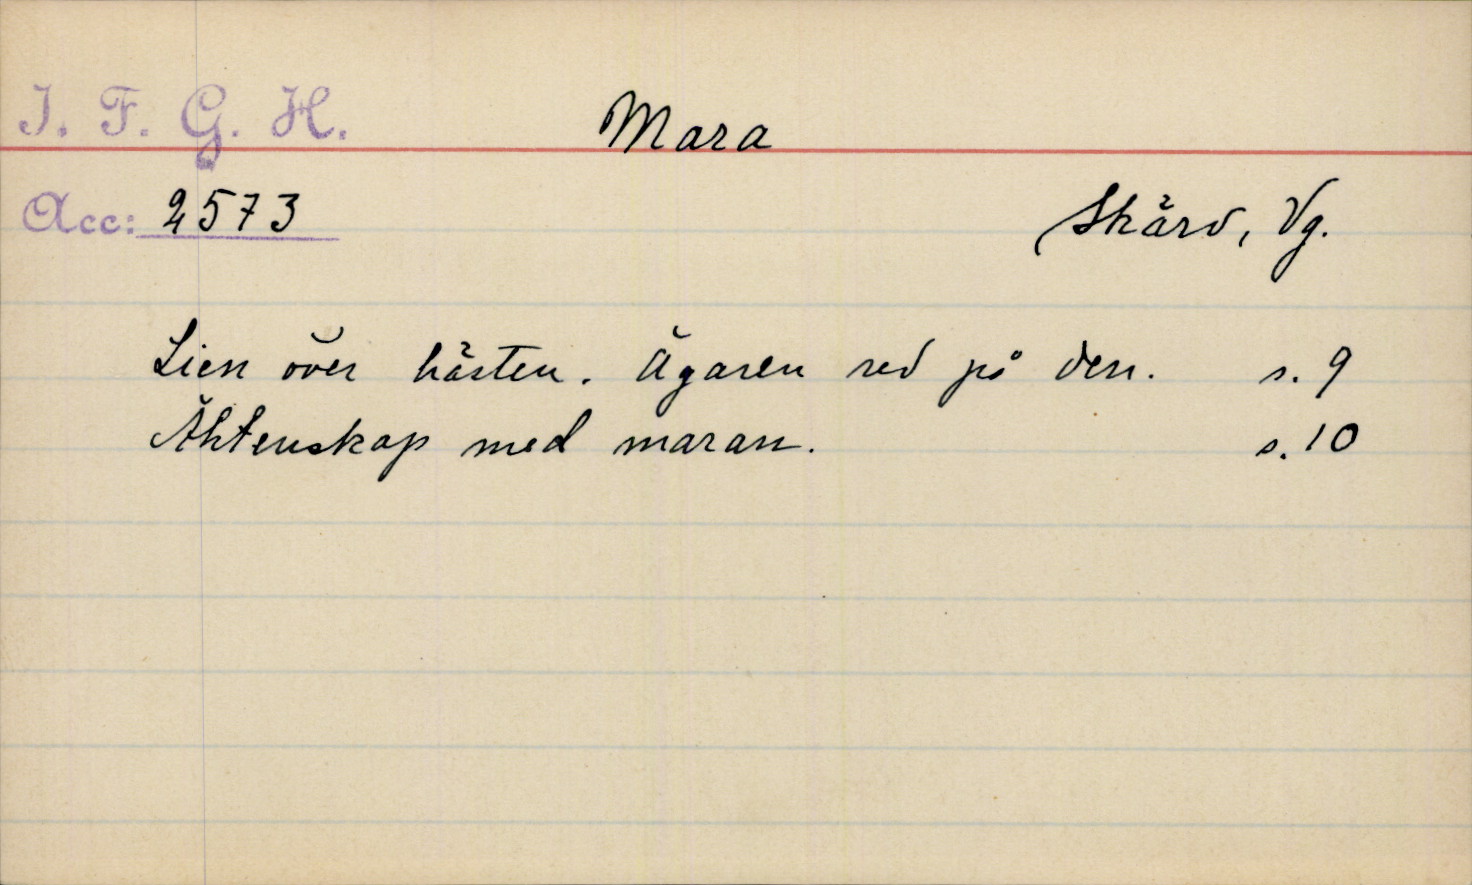 I. F. G. H.
Mara
Acc: 2573
Skärv, Vg.
Lien över hästen. Ägaren red på den. s. 9
Äktenskap med maran. s. 10